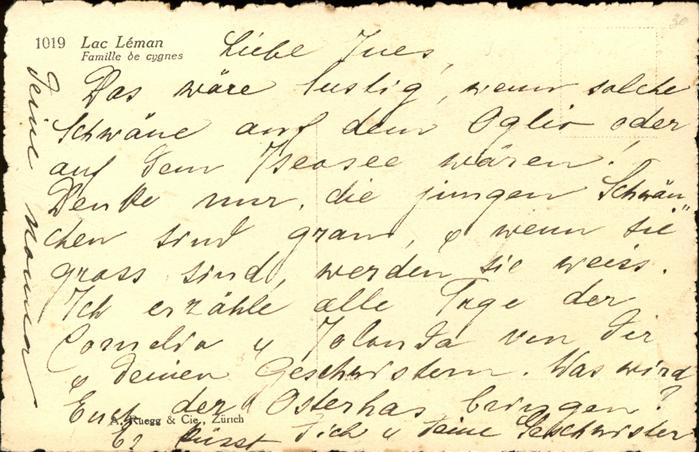 1019 Lac Léman
Famille de cygnes
Liebe Ines,
Das wäre lustig, wenn solche
Schwäne auf dem Oglio oder
auf dem Iseosee wären!
Denke nur, die jungen Schwän-
chen sind grau, & wenn sie
gross sind, werden sie weiss.
Ich erzähle alle Tage der
Cornelia & Jolanda von Dir
& deinen Geschwistern. Was wird
Euch der Osterhas bringen?
A. Ruegg & Cie., Zürich
Es küsst Dich & Deine Geschwister
Deine